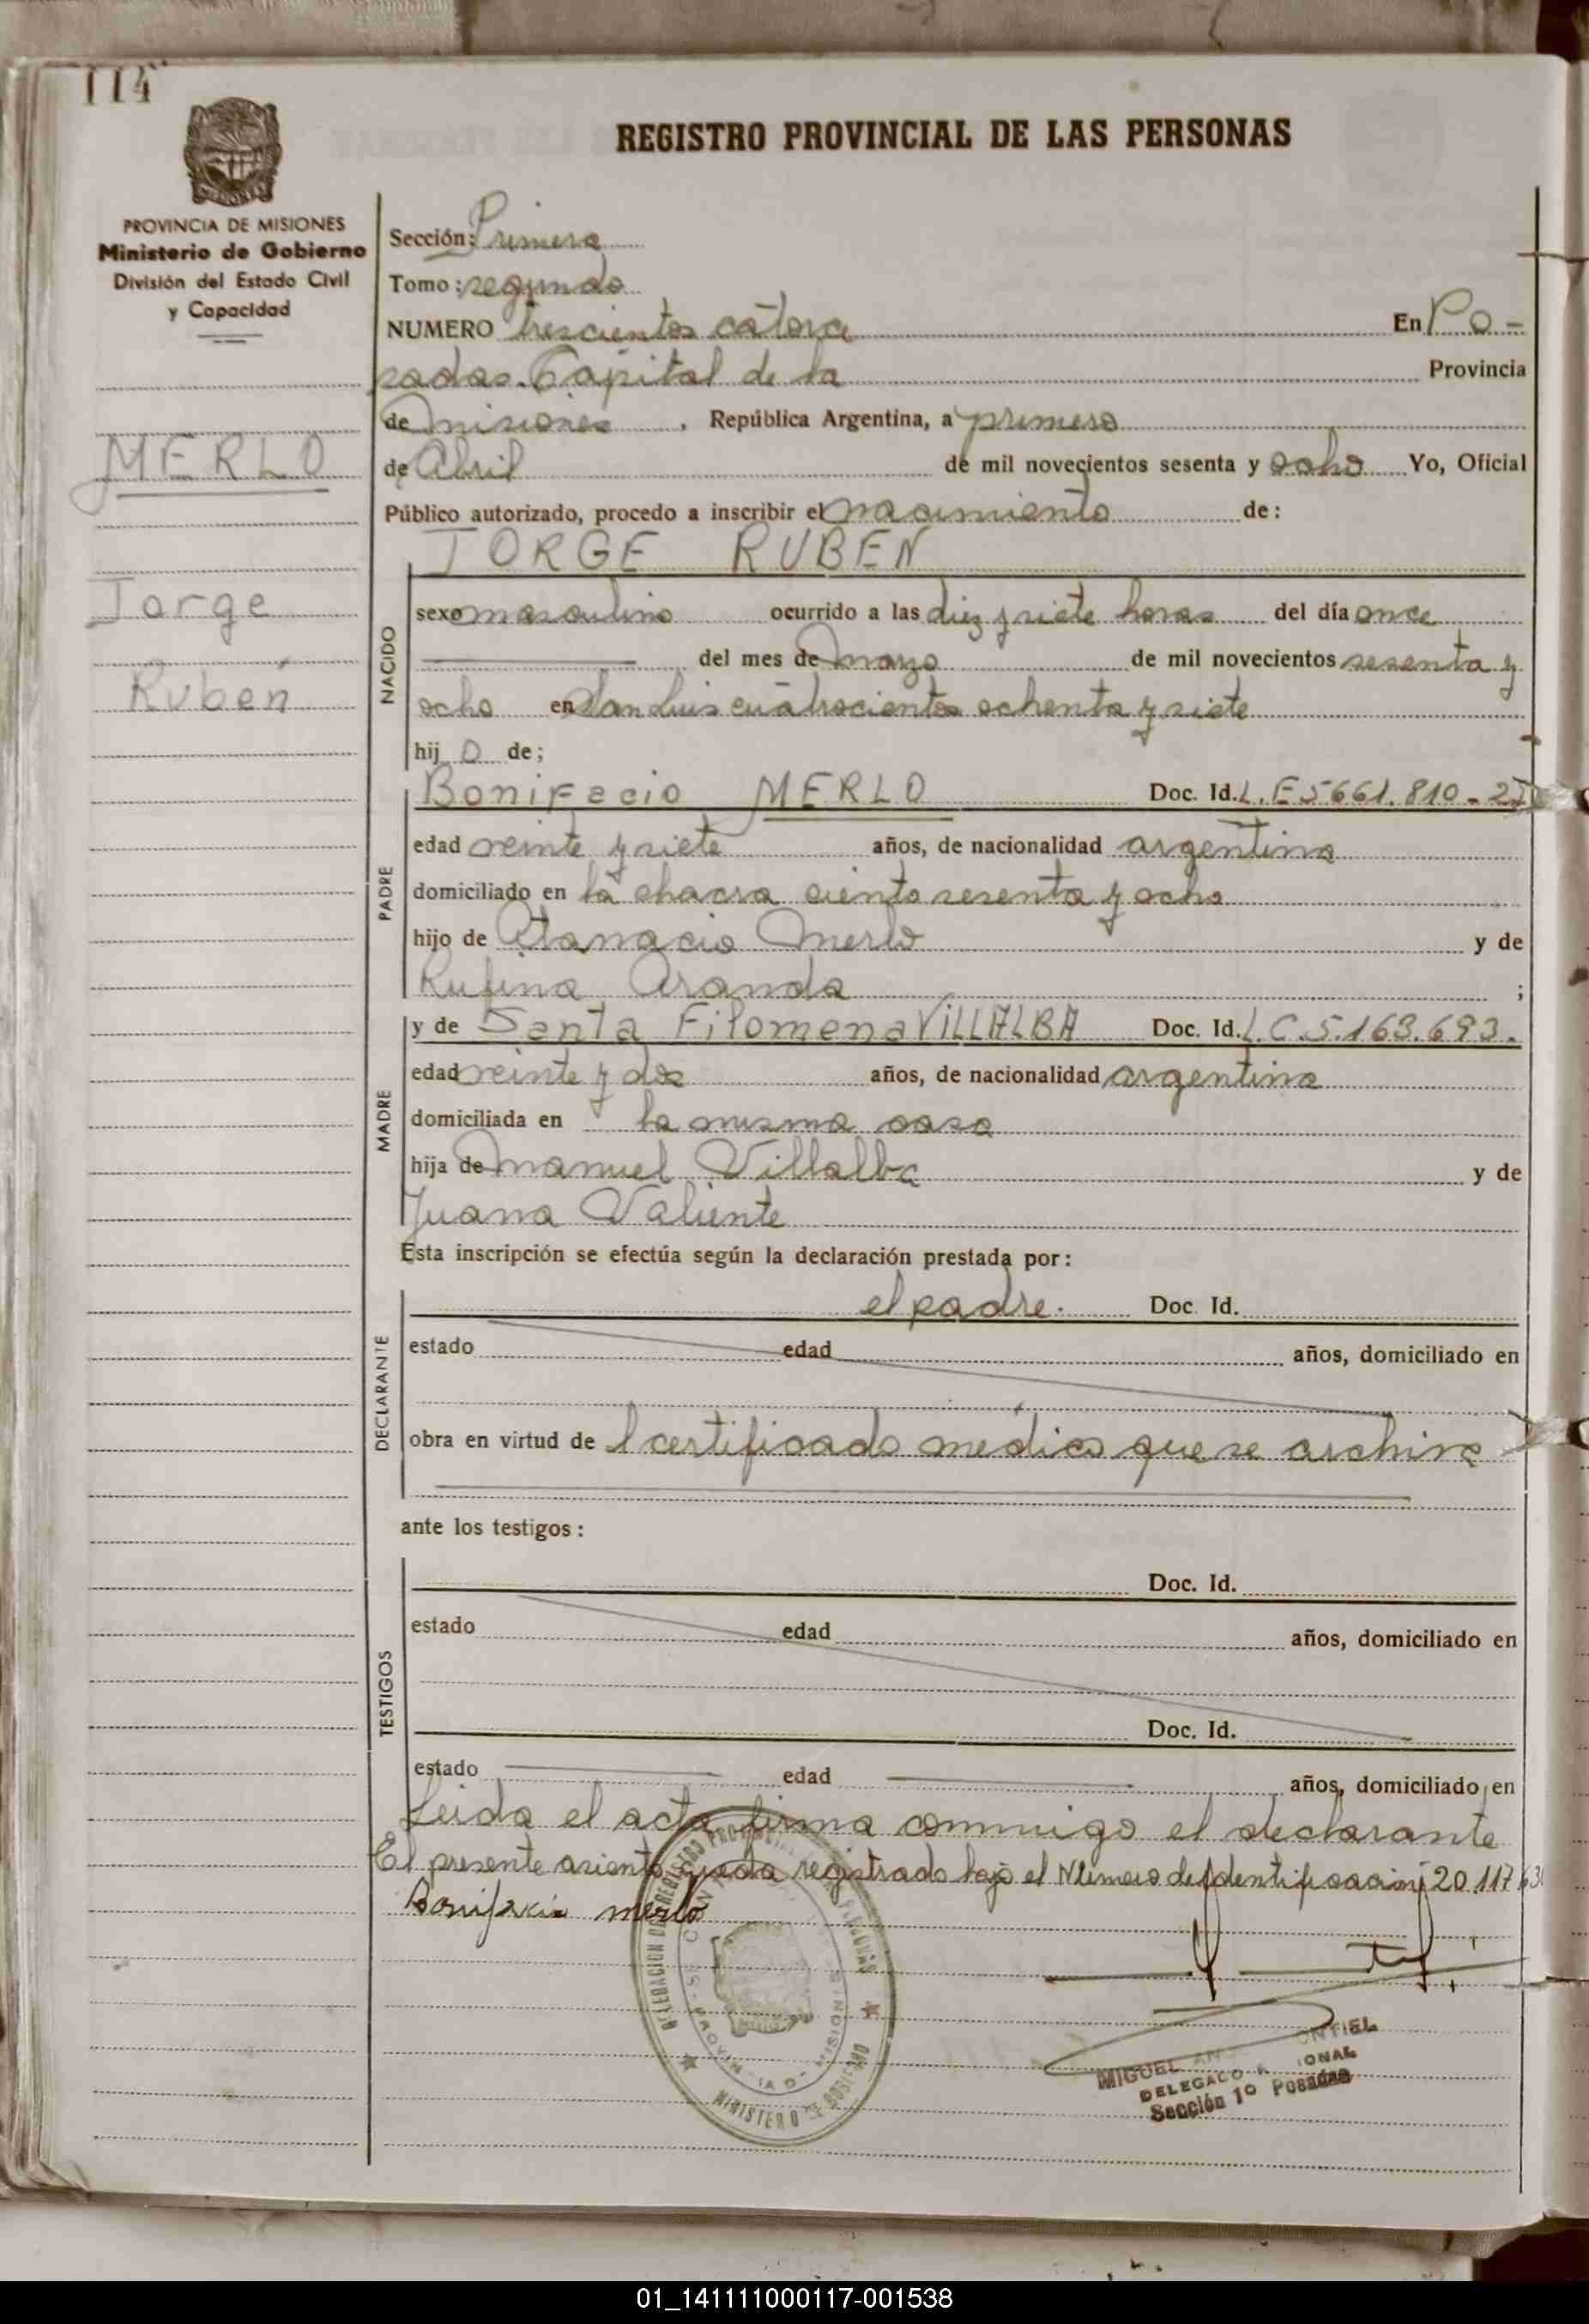 114
REGISTRO PROVINCIAL DE LAS PERSONAS
PROVINCIA DE MISIONES
Ministerio de Gobierno
División del Estado Civil
y Capacidad
MERLO
Jorge
Rubén
Sección: Primera
Tomo: segundo
NUMERO trescientos catorce En Po-
sadas Capital de la Provincia
de Misiones, República Argentina, a primero
de Abril de mil novecientos sesenta y ocho Yo, Oficial
Público autorizado, procedo a inscribir el nacimiento de:
JORGE RUBEN
NACIDO
sexo masculino ocurrido a las diez y siete horas del día once
del mes de Marzo de mil novecientos sesenta y
ocho en San Luis cuatrocientos ochenta y siete
hijo de;
PADRE
Bonifacio MERLO Doc. Id. L. E 5661.810
edad veinte y siete años, de nacionalidad argentina
domiciliado en la chacra ciento sesenta y ocho
hijo de Atanacio Merlo y de
Rufina Aranda ;
MADRE
y de Santa Filomena VILLALBA Doc. Id. L. C. 5.163.693.
edad veinte y dos años, de nacionalidad argentina
domiciliada en la misma casa
hija de Manuel Villalba y de
Juana Valiente
Esta inscripción se efectúa según la declaración prestada por:
DECLARANTE
el padre. Doc. Id.
estado edad años, domiciliado en
obra en virtud de l certificado médico que se archiva
ante los testigos:
TESTIGOS
Doc. Id.
estado edad años, domiciliado en
Doc. Id.
estado edad años, domiciliado en
Leida el acta firma conmigo el declarante
El presente asiento queda registrado bajo el Número de Identificación: 20.117.63
Bonifacio merlo
MINISTERIO DE GOBIERNO
MIGUEL
DELEGADO
Sección 1º Posadas
01_141111000117-001538